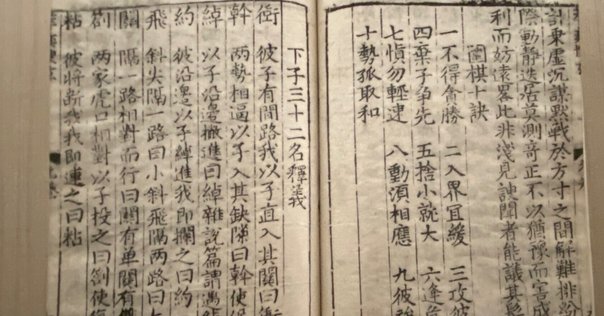 計乘虛沉謀黙戰於方寸之間解難排紛
際動靜迭居莫測奇正不以猶豫而害成
利而妨遠畧此非淺見諛聞者能議其
圍棋十訣
一不得貪勝 二入界宜緩 三攻彼
四棄子争先 五捨小就大 六逢
七慎勿輕速 八動湏相應 九彼強
十勢孤取和
下子三十二名釋義
衝 彼子有關路我以子直入其關曰衝
幹 兩勢相逼以子入其缺隙曰幹使
綽 以子沿邊撇進曰綽雜說篇謂遇
約 彼沿邊以子綽進我即攔之曰約
飛 斜头隔一路曰小斜飛隔两路曰
關 隔一路相對而行曰關有單關有
劄 兩家虎口相對以子投之曰劄使
粘 彼將斷我我即連之曰粘